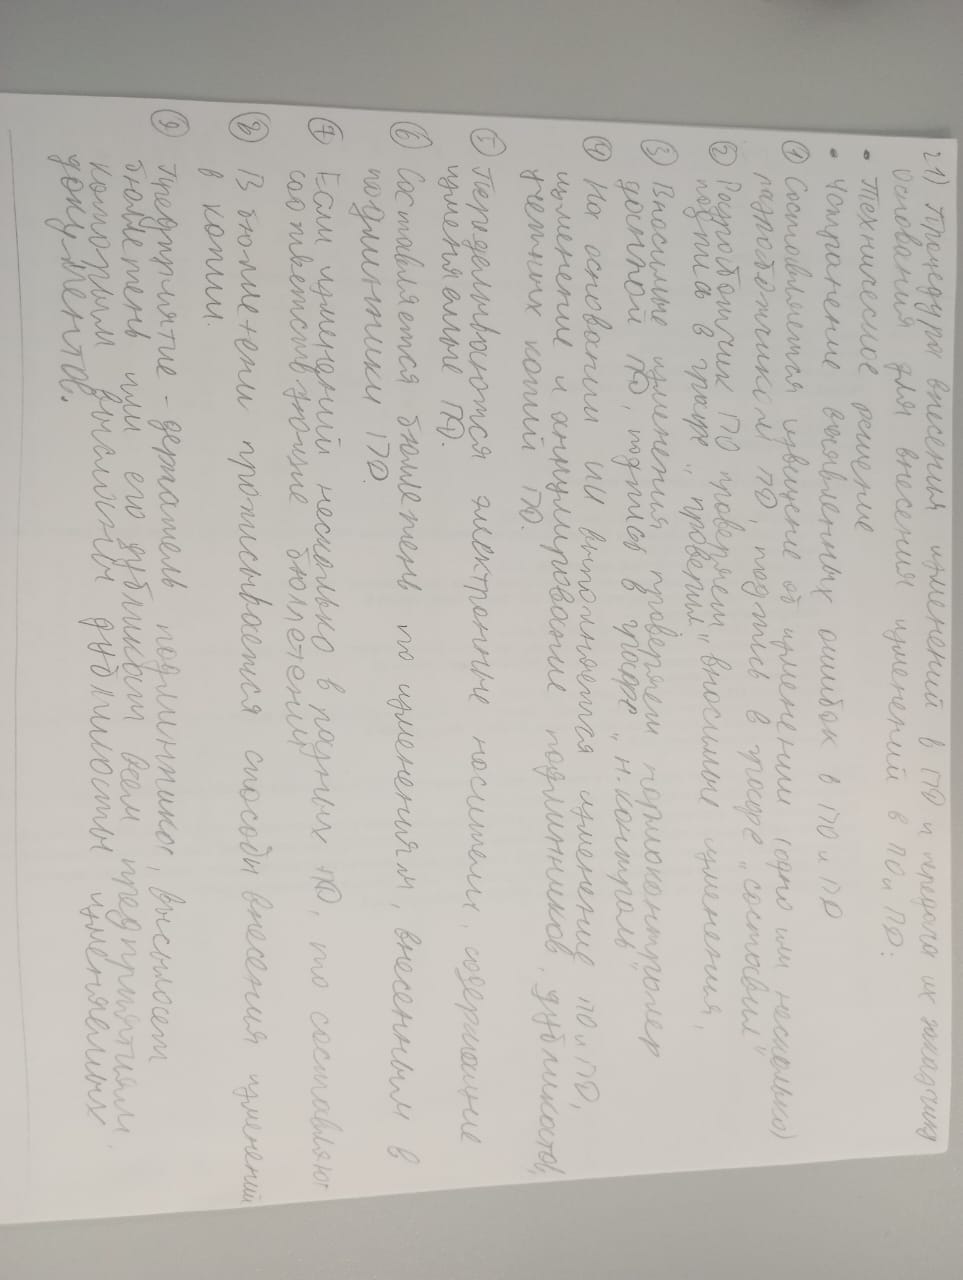 21) Процедура внесения изменений в ПО и передача их заказчику
Основания для внесения изменений в ПО и ПД:
• Техническое решение
• Устранение выявленных ошибок в ПО и ПД
① Составляется извещение об изменении (одно или несколько)
разработчиком ПД, подпись в графе „составил"
② Разработчик ПО проверяет вносимые изменения,
подпись в графе „проверил"
③ Вносимые изменения проверяет нормоконтролер
данной ПД, подпись в графе „н.контроль"
④ На основании ИИ выполняется изменение ПО и ПД,
изменение и аннулирование подлинников, дубликатов,
учетных копий ПД.
⑤ Переделываются электронные носители, содержащие
изменяемые ПД.
⑥ Составляется бюллетень по изменениям, внесенным в
подлинники ПД.
⑦ Если изменений несколько в разных ПД, то составляют
соответствующие бюллетени
⑧ В бюллетени прописывается способы внесения изменений
в копии.
⑨ Предприятие - держатель подлинников, высылает
бюллетень или его дубликат всем предприятиям,
которым высланы дубликаты изменяемых
документов.